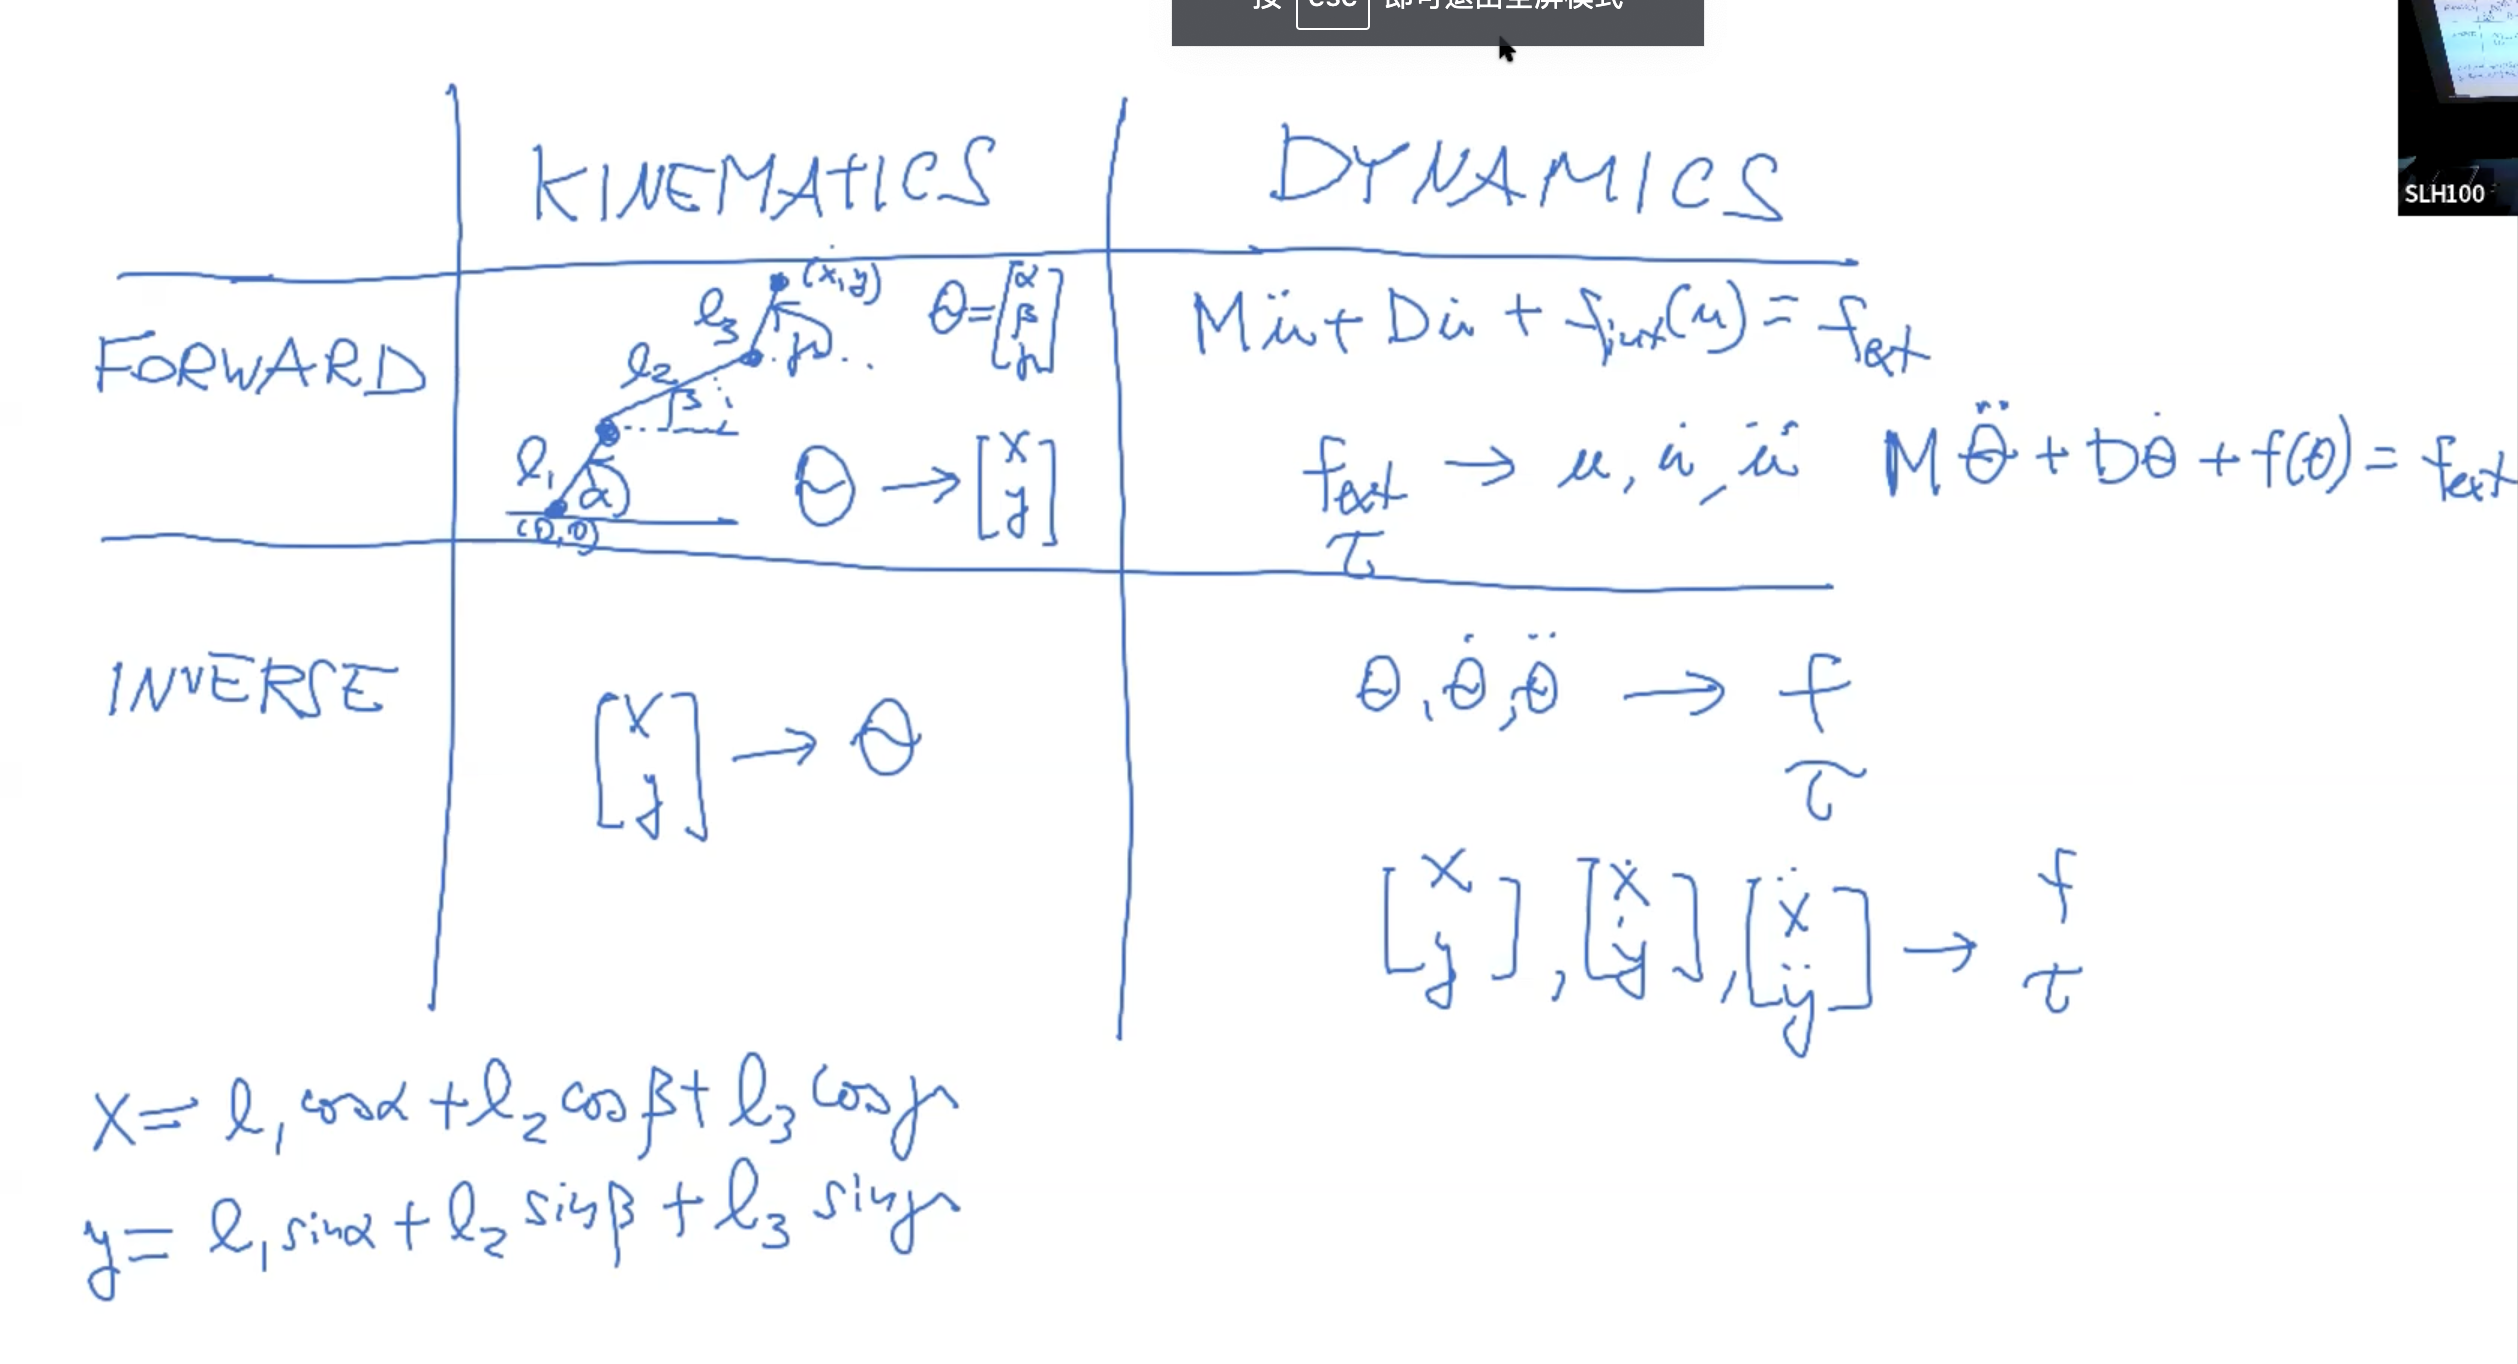 按 esc 即可退出全屏模式
SLH100
KINEMATICS
DYNAMICS
FORWARD
(x,y)
l₃
γ
l₂
β
l₁
α
(0,0)
θ = [α β γ]
θ → [x y]
Mü + Du̇ + f_int(u) = f_ext
f_ext → u, u̇, ü
τ
Mθ̈ + Dθ̇ + f(θ) = f_ext
INVERSE
[x y] → θ
θ, θ̇, θ̈ → f
τ
[x y], [ẋ ẏ], [ẍ ÿ] → f
τ
x = l₁ cosα + l₂ cosβ + l₃ cosγ
y = l₁ sinα + l₂ sinβ + l₃ sinγ